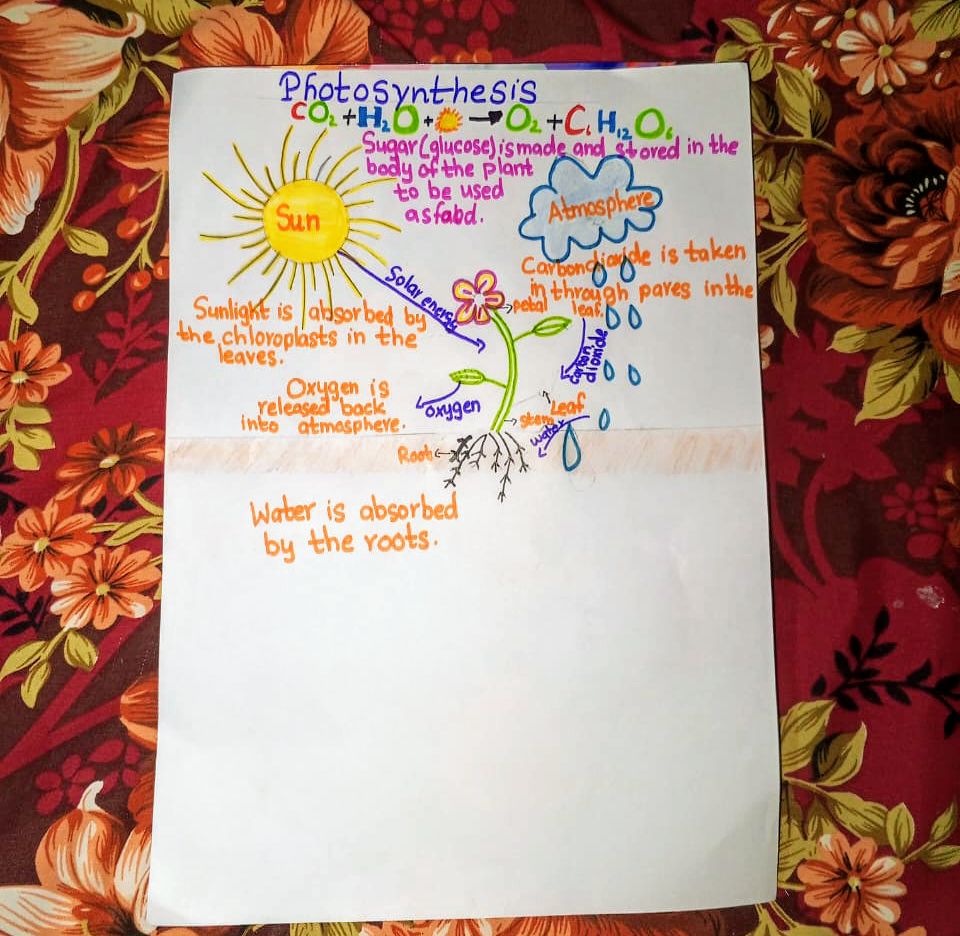 Photosynthesis
CO₂ + H₂O + → O₂ + C₁ H₁₂ O₆
Sugar (glucose) is made and stored in the
body of the plant
to be used
as fabd.
Sun
Atmosphere
Carbondioxide is taken
in through pares in the
leaf.
Solar energy
petal
Sunlight is absorbed by
the chloroplasts in the
leaves.
carbon
dioxide
Oxygen is
released back
into atmosphere.
oxygen
Leaf
stem
water
Root
Water is absorbed
by the roots.